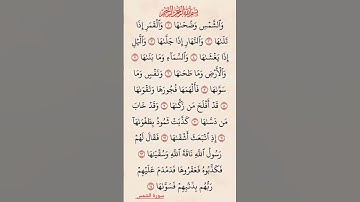 بِسْمِ ٱللَّهِ ٱلرَّحْمَٰنِ ٱلرَّحِيمِ
وَٱلشَّمْسِ وَضُحَىٰهَا ١ وَٱلْقَمَرِ إِذَا
تَلَىٰهَا ٢ وَٱلنَّهَارِ إِذَا جَلَّىٰهَا ٣ وَٱلَّيْلِ
إِذَا يَغْشَىٰهَا ٤ وَٱلسَّمَآءِ وَمَا بَنَىٰهَا ٥
وَٱلْأَرْضِ وَمَا طَحَىٰهَا ٦ وَنَفْسٍ وَمَا
سَوَّىٰهَا ٧ فَأَلْهَمَهَا فُجُورَهَا وَتَقْوَىٰهَا
٨ قَدْ أَفْلَحَ مَن زَكَّىٰهَا ٩ وَقَدْ خَابَ
مَن دَسَّىٰهَا ١٠ كَذَّبَتْ ثَمُودُ بِطَغْوَىٰهَآ
١١ إِذِ ٱنۢبَعَثَ أَشْقَىٰهَا ١٢ فَقَالَ لَهُمْ
رَسُولُ ٱللَّهِ نَاقَةَ ٱللَّهِ وَسُقْيَٰهَا ١٣
فَكَذَّبُوهُ فَعَقَرُوهَا فَدَمْدَمَ عَلَيْهِمْ
رَبُّهُم بِذَنۢبِهِمْ فَسَوَّىٰهَا ١٤
سورة الشمس